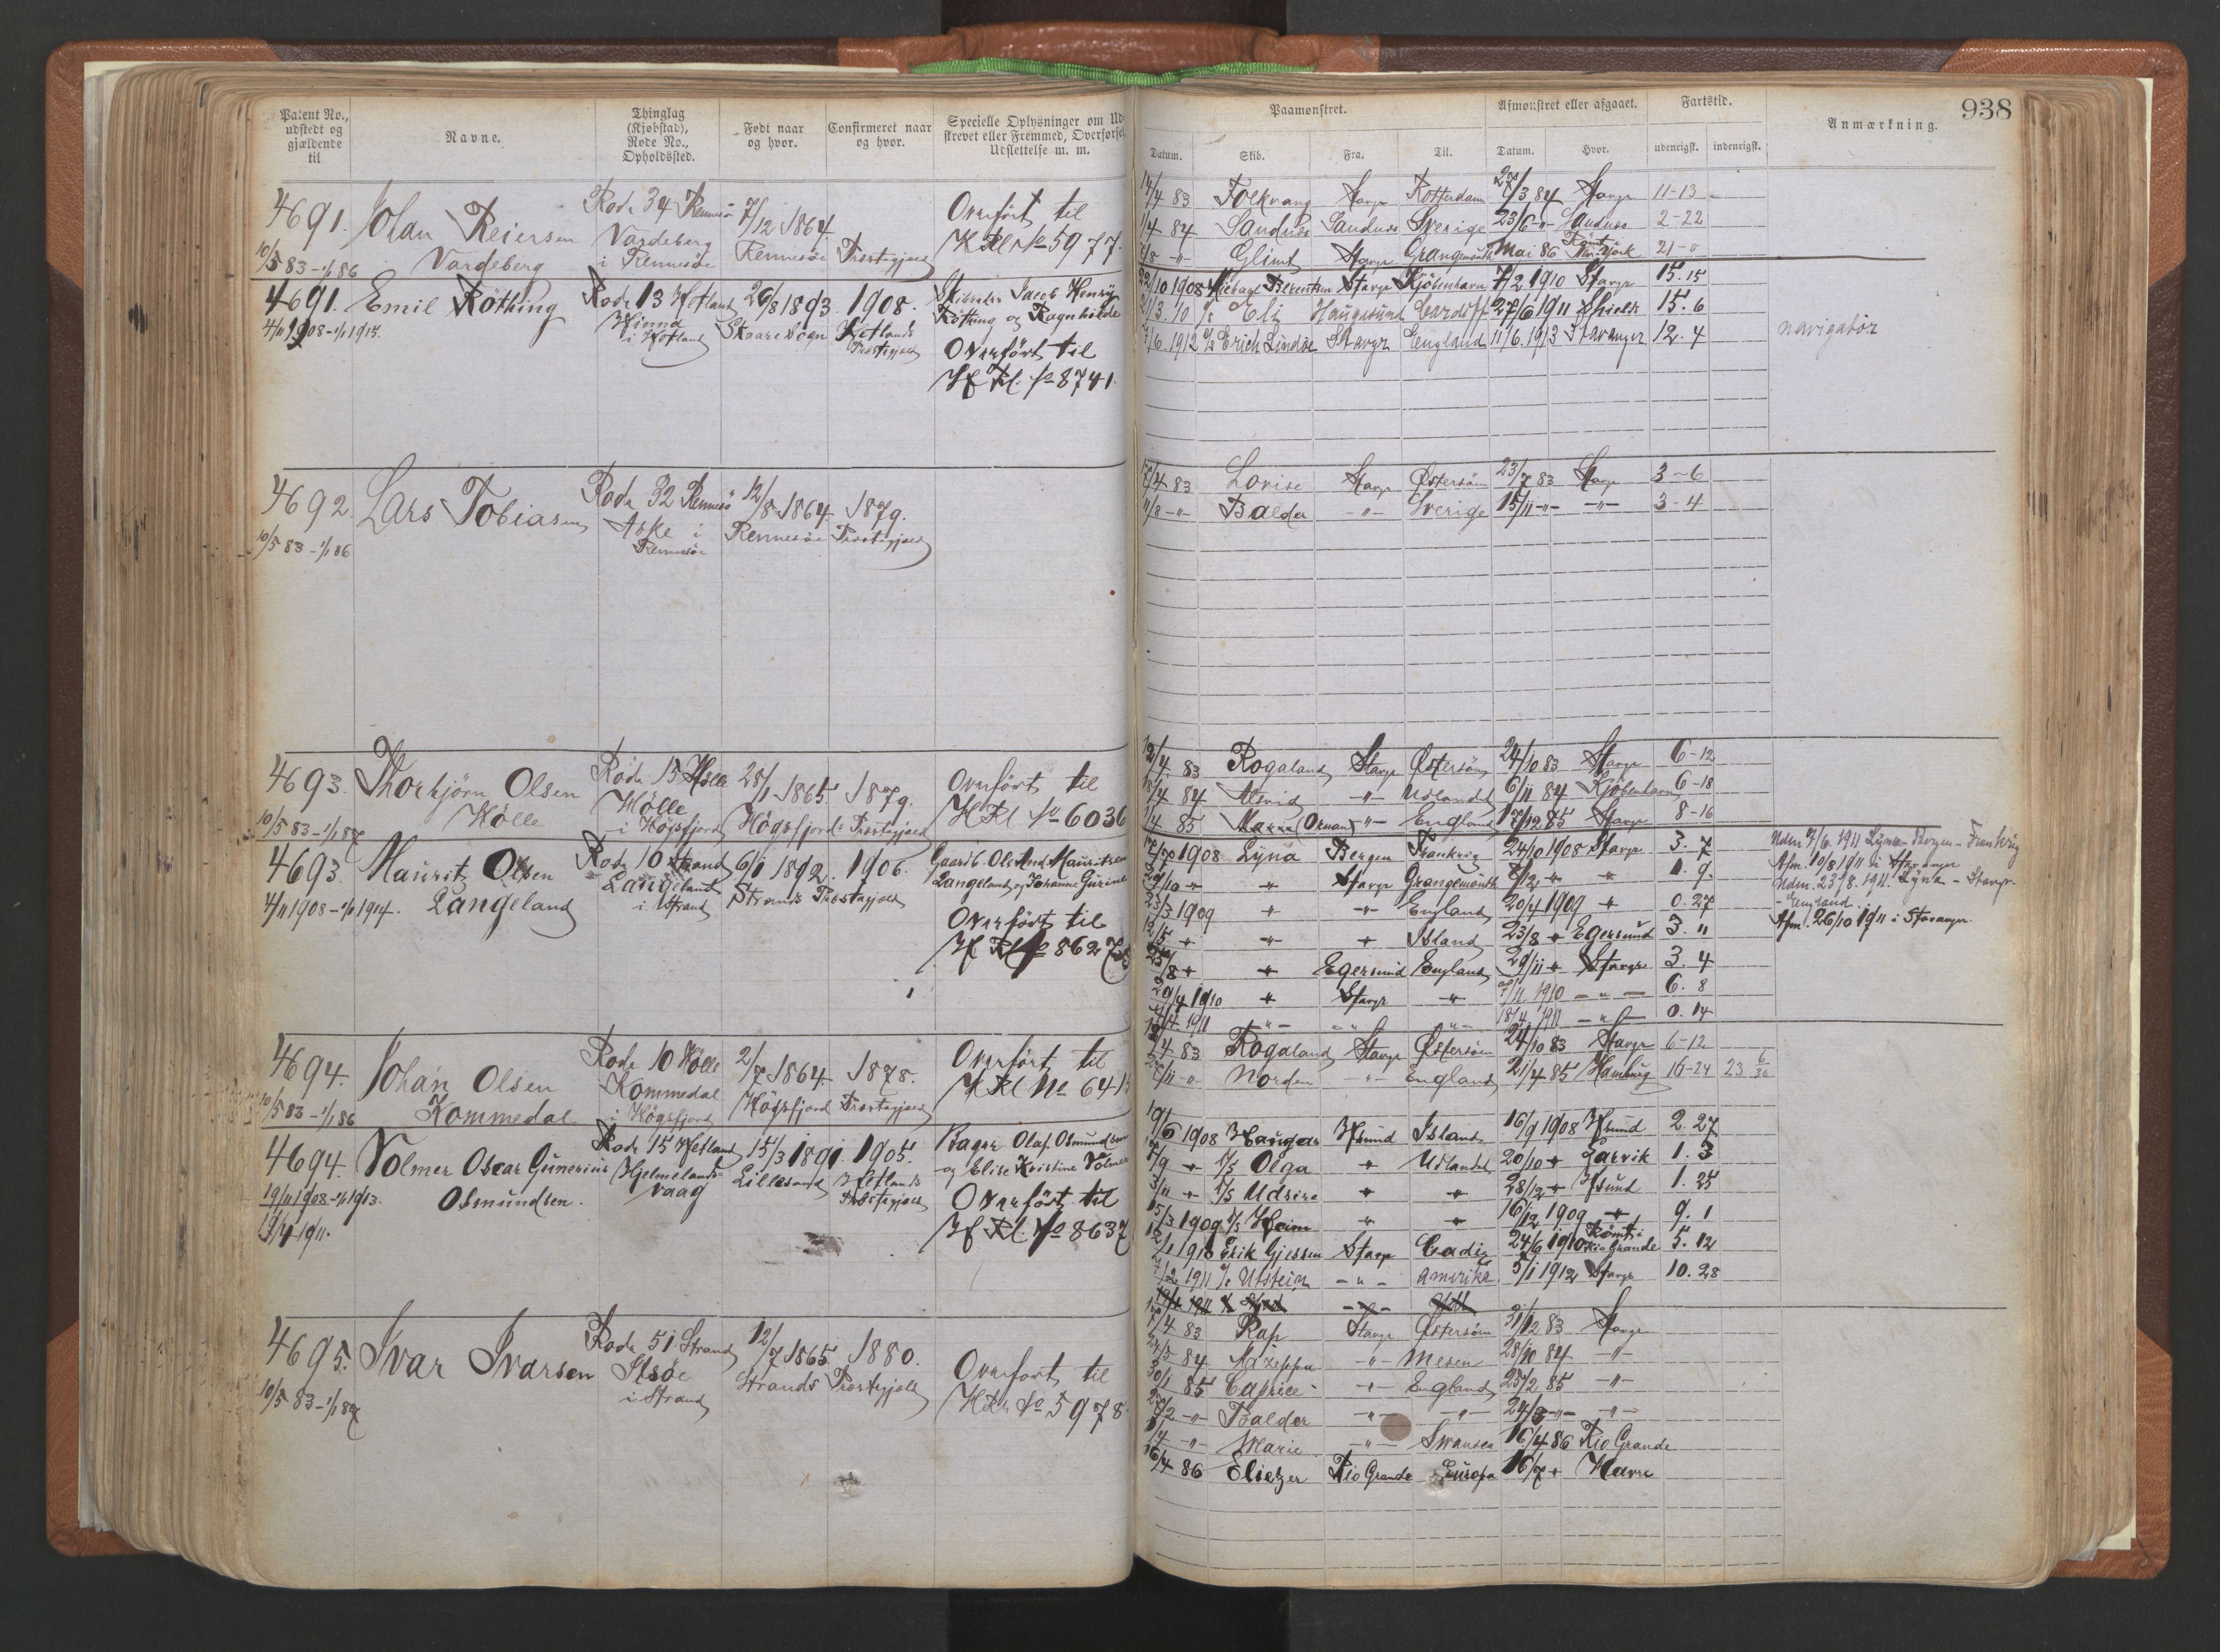 938
Patent No., udstedt og gjældende til
Navne.
Thinglag (Kjøbstad), Rode No., Opholdssted.
Født naar og hvor.
Confirmeret naar og hvor.
Specielle Oplysninger om Ud-
skrevet eller Fremmed, Overførsel
Udslettelse m. m.
Paamønstret.
Afmønstret eller afgaaet.
Fartstid.
Anmærkning.
Datum. Skib. Fra. Til. Datum. Hvor. udenrigsk. indenrigsk.
4691. Olau Reiersen Rode 34 Rennesö 7/12 1864 Overført til
Vardeberg Vardeberg i Rennesöe Rennesöe Præstegjæld H Rl No 5977.
10/5 83 - 1/1 86
14/4 83 Folkvang Stavgr Rotterdam 27/3 84 Stavgr 11-13
1/4 84 Sandnæs Sandnæs Sverige 23/6 -"- Sandnæs 2-22
Glimt Stavgr Grangemouth Mai 86 Rømt i New York 21-0
4691. Emil Röthing Rode 13 Hetland 26/8 1893. 1908. Skibsfr. Jacob Henry
4/11 1908 - 1/1 1915. Hinna i Hetland Skaare Sogn Hetlands Præstegjæld Rötting og Ragnhilde
Overført til
H Rl. No 8741.
22/10 1908 Michael Berentsen Stavgr Kjöbenhavn 7/2 1910 Stavgr 15. 15
21/3. 10 Eli Haugesund Cardiff 27/6 1911 Shields 15. 6
1/6. 1912 Erich Lindöe Stavgr England 11/6. 1913 Stavanger 12. 4
navigatör
4692. Lars Tobiasen Rode 32 Rennesö 12/8 1864 1879.
10/5 83 - 1/1 86 Aske i Rennesöe Rennesöe Præstegjæld
17/4 83 Lovise Stavgr Østersöen 23/7 83 Stavgr 3-6
11/8 -"- Balder -"- Sverige 15/11 -"- -"- 3-4
4693. Thorbjörn Olsen Rode 15 Hölle 28/1 1865. 1879. Overført til
Hölle Hölle i Högsfjord Högsfjords Præstegjæld H Rl No 6036
10/5 83 - 1/1 87
19/4. 83 Rogaland Stavgr Østersöen 24/10 83 Stavgr 6-12
4 84 Alvid -"- Udlandet 6/11 84 Kjöbenhavn 6-18
1/4 85 Maria (Oknan) -"- England 17/12 85 Stavgr 8-16
4693. Mauritz Olsen Rode 10 Strand 6/1 1892. 1906. Gaardb. Ole And. Mauritzen
4/11 1908 - 1/1 1914. Langeland Langeland i Strand Strands Præstegjæld Langeland og Johanne Gurine
Overført til
H Rl No 8627
1908 Lyna Bergen Frankrig 24/10 1908 Stavgr 3. 7
29/10 " " Stavgr Grangemouth 8/12 " " 1. 9.
23/3 1909 " " England 20/4 1909 " 0. 27
12/5 " " " Island 23/8 " Egersund 3. "
25/8 " " Egersund England 29/11 " Stavgr 3. 4
29/4 1910 " Stavgr " 7/11 1910 - " - 6. 8
4/4 1911 - " - - " - 18/4 1911 - " - 0. 14
Udm. 7/6. 1911 Lyna Bergen - Frankrig
Afm. 10/8 1911 i Stavanger
Udm. 23/8. 1911. Lyna - Stavgr. - England.
Afm. 26/10 1911 i Stavanger
4694. Johan Olsen Rode 10 Hölle 2/7 1864. 1878. Overført til
Kommedal Kommedal i Högsfjord Högsfjord Præstegjæld H Rl No 641
10/5 83 - 1/1 86
19/4 83 Rogaland Stavgr Østersöen 24/10 83 Stavgr 6-12
/11 -"- Norden -"- England 21/4 85 Hamburg 16-24 23 6/30
4694. Volmer Oscar Gunerius Rode 15 Hetland 15/3 1891. 1905. Bager Olaf Osmundsen
19/11 1908 - 1/1 1913. Osmundsen. Hjelmelands vaag Lillesand Hetlands Præstegjæld og Elise Kristine Volmer
19/4 1911. Overført til
H Rl. No 8637
19/6 1908 Haugar Hsund Island 16/9 1908 Hsund 2. 27
/9 " Olga " Udlandet 20/10 " Larvik 1. 3
3/11 " Udsire " " 28/12 " Hsund 1. 25
15/3 1909 Heim " " 16/12 1909 " 9. 1
1910 Erik Gjessen Stavgr Cadiz 24/6 1910 Rømt i Rio Grande 5. 12
/2 1911 Utstein - " - Amerika 5/1 1912 Stavgr 10. 28
4695. Ivar Ivarsen Rode 51 Strand 12/7 1865 1880. Overført til
10/5 83 - 1/1 87 Idsöe i Strand Strands Præstegjæld H Rl No 5978
17/4 83 Rap Stavgr Østersöen 31/12 83 Stavgr
84 Mazeppa -"- Mesen 28/10 84 -"-
30/1 85 Caprice -"- England 25/2 85 -"-
/2 -"- Balder -"- -"- 24/3 -"- -"-
1/4 -"- Marie -"- Swansea 16/4 86 Rio Grande
16/4 86 Eliezer Rio Grande Europa 16/7 " Havre